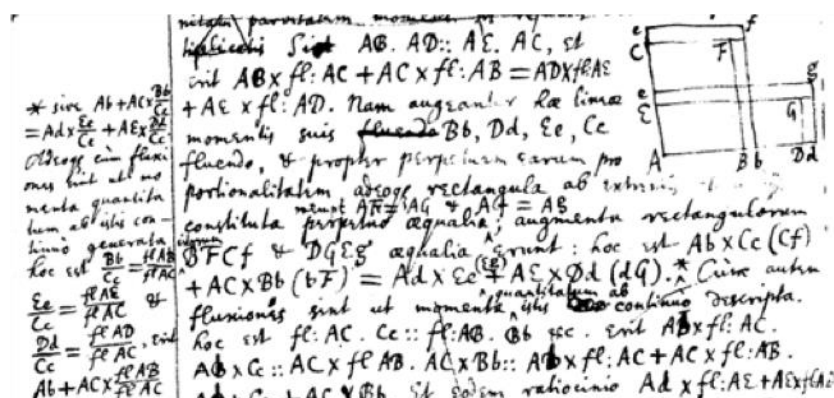 tiplicatis Sint AB. AD:: AE. AC, et
erit AB×fl:AC + AC×fl:AB = AD×fl:AE
+ AE × fl:AD. Nam augeantur hæ lineæ
momentis suis fluendo Bb, Dd, Ee, Cc
fluendo, & propter perpetuam earum pro
portionalitatem adeoqe rectangula ab extremis
nempe AF = AG & Af = Ag
constituta perpetuo æqualia; augmenta rectangulorum
eorum
BFCf & DGEg æqualia erunt: hoc est Ab×Cc (Cf)
+ AC×Bb (bF) = Ad×Ee (Eg) + AE×Dd (dG).* Cùm autem
quantitatum ab
fluxiones sint ut momenta istis continuò descripta.
hoc est fl:AC. Cc:: fl:AB. Bb &c. erit Ab×fl:AC.
Ab×Cc:: AC×fl AB. AC×Bb:: Ab×fl:AC + AC×fl:AB.
Ab×Cc + AC×Bb. Et eodem ratiocinio Ad×fl:AE + AE×fl:AD
* sive Ab + AC×Bb/Cc
= Ad×Ee/Cc + AE×Dd/Cc
Adeoqe cùm fluxi
ones sint ut mo
menta quantita
tum ab istis con-
tinuò generata
hoc est Bb/Cc = fl AB/fl AC
Ee/Cc = fl AE/fl AC &
Dd/Cc = fl AD/fl AC, erit
Ab + AC×fl AB/fl AC
e f
C F
e g
E G
A B b D d